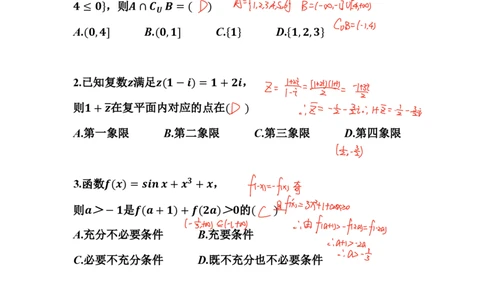 4 ≤ 0}，则A∩C_U B=( D ) A={1,2,3,4,5,6} B=(-∞,-1]∪[4,+∞)
A.(0,4] B.(0,1] C.{1} D.{1,2,3} C_U B=(-1,4)
2.已知复数z满足z(1 − i) = 1 + 2i， z=\frac{1+2i}{1-i}=\frac{(1+2i)(1+i)}{2}=\frac{-1+3i}{2}
则1 + z̄在复平面内对应的点在( D ) ∴z̄=-\frac{1}{2}-\frac{3}{2}i ∴1+z̄=\frac{1}{2}-\frac{3}{2}i
A.第一象限 B.第二象限 C.第三象限 D.第四象限
(\frac{1}{2},-\frac{3}{2})
3.函数f(x) = sin x + x³ + x， f(-x)=-f(x) 奇
则a＞ − 1是f(a + 1) + f(2a)＞0的( C ) f'(x)=3x²+1+cosx≥0
(-\frac{1}{3},+∞)⊆(-1,+∞) ∴由f(a+1)>-f(2a)=f(-2a)
A.充分不必要条件 B.充要条件 ∴a+1>-2a
C.必要不充分条件 D.既不充分也不必要条件 ∴a>-\frac{1}{3}